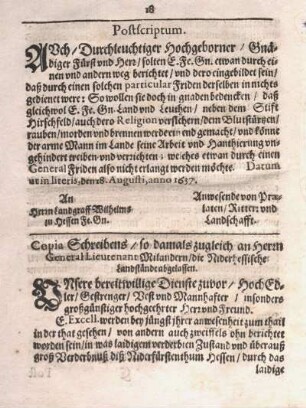 18
Postscriptum.
AUch / Durchleuchtiger Hochgeborner / Gnä-
diger Fürst und Herr / solten E. Fr. Gn. etwan durch ei-
nen und andern weg berichtet / und dero eingebildet sein /
daß durch einen solchen particular Friden derselben in nichts
gedienet were: So wollen sie doch in gnaden bedencken / daß
gleichwol E. Fr. Gn. Land und Leuthen / neben dem Stift
Hirschfeld / auch dero Religion versichern / dem Blutstürtzen /
rauben / morden und brennen werde ein end gemacht / und könne
der arme Mann im Lande seine Arbeit und Hanthierung un-
gehindert treiben und verrichten / welches etwan durch einen
General Friden also nicht erlangt werden möchte. Datum
ut in literis, den 18. Augusti, anno 1637.
An
Herrn Landgraff Wilhelms
zu Hessen Fr. Gn.
Anwesende von Præ-
laten / Ritter- und
Landschafft.
Copia Schreibens / so damals zugleich an Herrn
General-Lieutenant Milandern / die Niderhessische
Landstände abgelassen.
UNsere bereitwillige Dienste zuvor / Hoch Ed-
ler / Gestrenger / Vest und Mannhafter / insonders
großgünstiger hochgeehrter Herr und Freund.
E. Excell. werden bey jüngst ihrer anwesenheit zum theil
in der that gesehen / von andern auch zweiffels ohn berichtet
worden sein / in was laidigem verderbten Zustand und überauß
groß Verderbnuß diß Niderfürstenthum Hessen / durch das
laidige